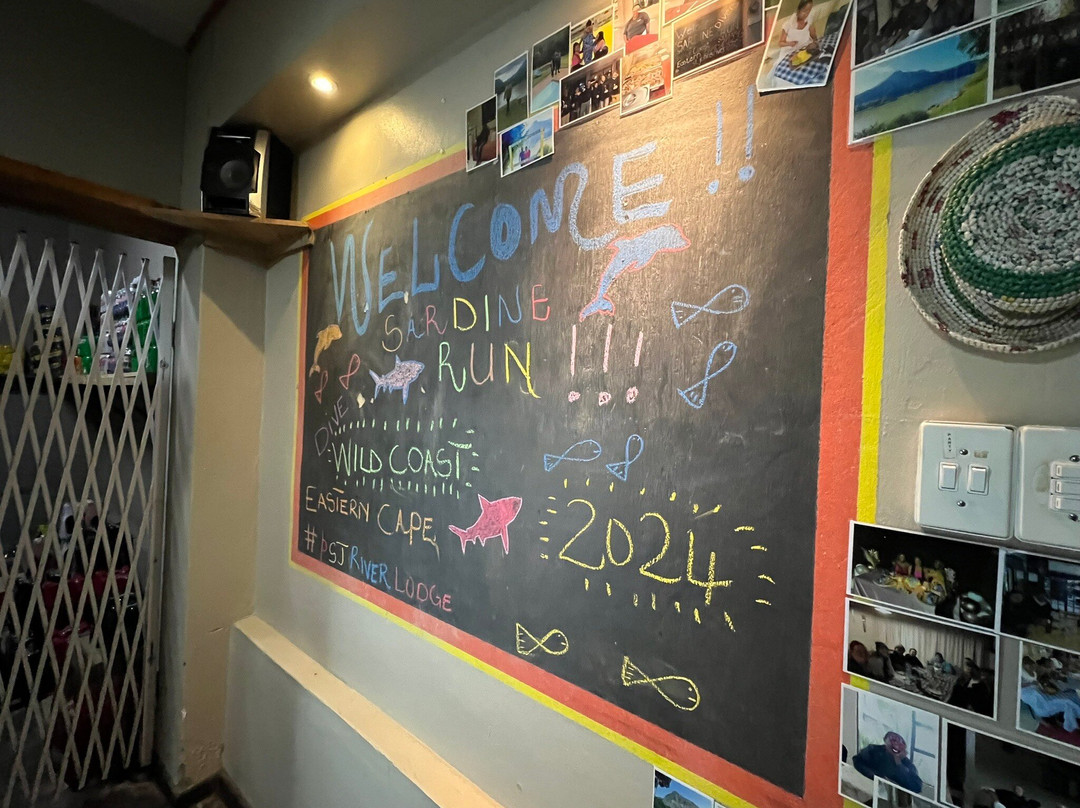 WELCOME !!
SARDINE
RUN !!!
DIVE
WILD COAST
EASTERN CAPE
#PSJ RIVER LODGE
2024